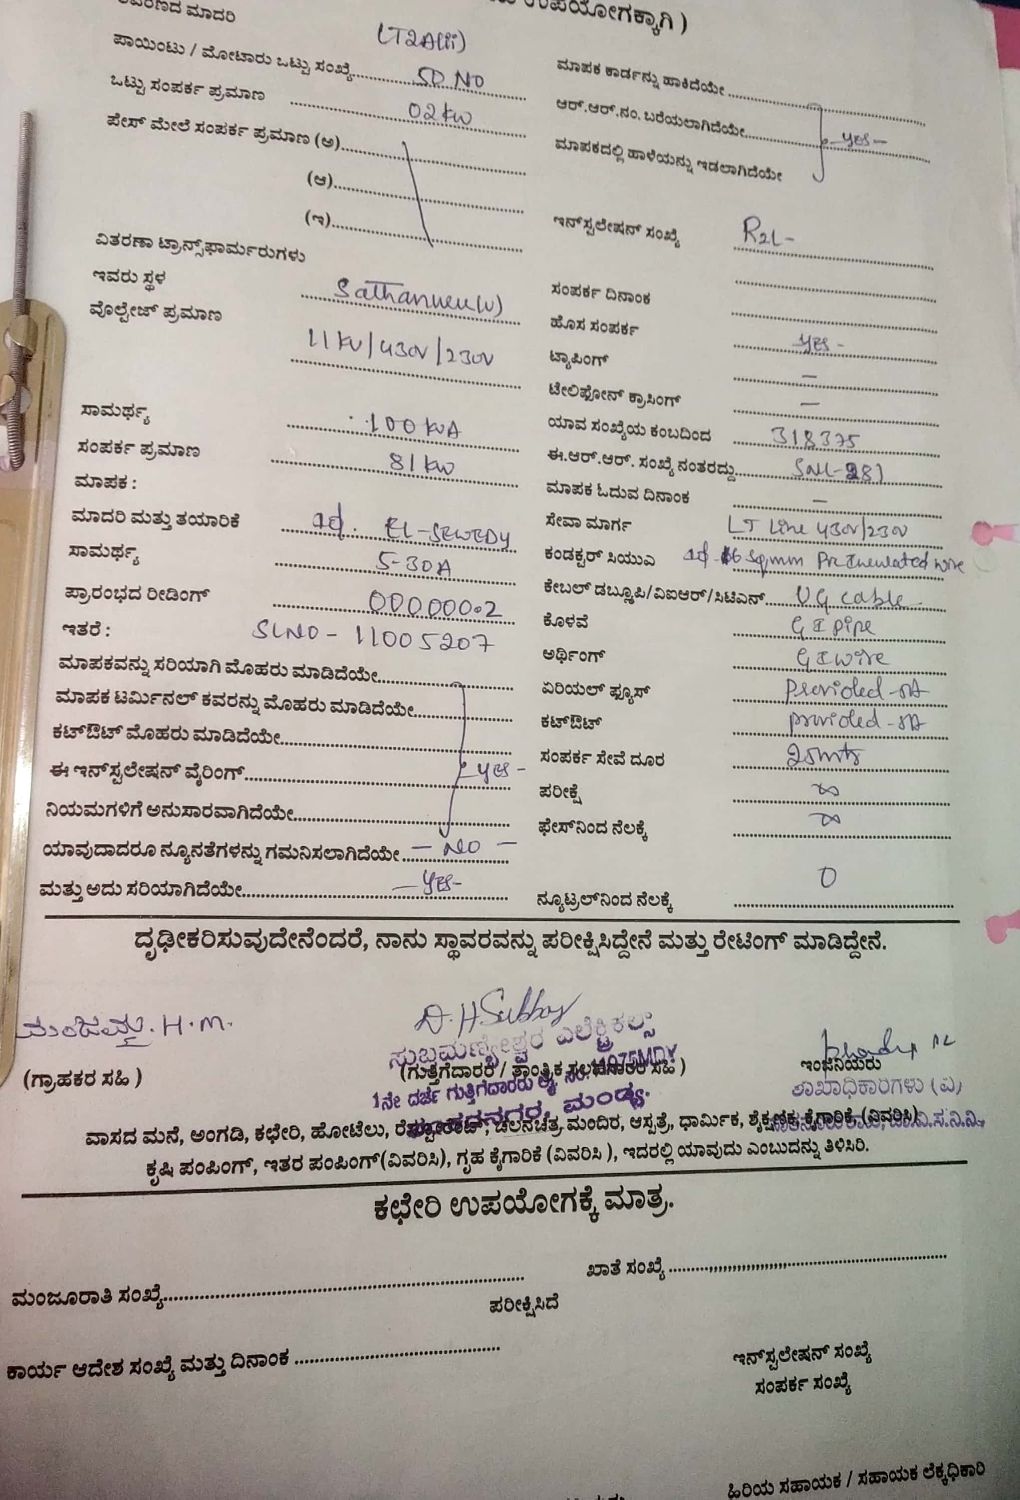 ಉಪಯೋಗಕ್ಕಾಗಿ )
ಮಾದರಿ LT2A(ii)
ಪಾಯಿಂಟು / ಮೋಟಾರು ಒಟ್ಟು ಸಂಖ್ಯೆ 5D NO
ಮಾಪಕ ಕಾರ್ಡನ್ನು ಹಾಕಿದೆಯೇ
ಒಟ್ಟು ಸಂಪರ್ಕ ಪ್ರಮಾಣ 02 kW
ಆರ್.ಆರ್.ನಂ. ಬರೆಯಲಾಗಿದೆಯೇ - YES -
ಪೇಸ್ ಮೇಲೆ ಸಂಪರ್ಕ ಪ್ರಮಾಣ (ಅ)
ಮಾಪಕದಲ್ಲಿ ಹಾಳೆಯನ್ನು ಇಡಲಾಗಿದೆಯೇ
(ಆ)
(ಇ)
ಇನ್‌ಸ್ಟಲೇಷನ್ ಸಂಖ್ಯೆ
ವಿತರಣಾ ಟ್ರಾನ್ಸ್‌ಫಾರ್ಮರುಗಳು
ಇವರು ಸ್ಥಳ
ಸಂಪರ್ಕ ದಿನಾಂಕ
ವೊಲ್ಟೇಜ್ ಪ್ರಮಾಣ 11kV/430V/230V
ಹೊಸ ಸಂಪರ್ಕ YES -
ಟ್ಯಾಪಿಂಗ್ -
ಟೇಲಿಫೋನ್ ಕ್ರಾಸಿಂಗ್ -
ಸಾಮರ್ಥ್ಯ 100 kVA
ಯಾವ ಸಂಖ್ಯೆಯ ಕಂಬದಿಂದ 318375
ಸಂಪರ್ಕ ಪ್ರಮಾಣ 81 kW
ಈ.ಆರ್.ಆರ್. ಸಂಖ್ಯೆ ನಂತರದ್ದು
ಮಾಪಕ :
ಮಾಪಕ ಓದುವ ದಿನಾಂಕ -
ಮಾದರಿ ಮತ್ತು ತಯಾರಿಕೆ 1ϕ. EL-SEWEDY
ಸೇವಾ ಮಾರ್ಗ LT Line 430V/230V
ಸಾಮರ್ಥ್ಯ 5-30A
ಕಂಡಕ್ಟರ್ ಸಿಯುಎ
ಪ್ರಾರಂಭದ ರೀಡಿಂಗ್ 000000.2
ಕೇಬಲ್ ಡಬ್ಲೂಪಿ/ವಿಐಆರ್/ಸಿಟಿಎನ್ UG cable
ಇತರೆ : SLNO - 11005207
ಕೊಳವೆ GI pipe
ಮಾಪಕವನ್ನು ಸರಿಯಾಗಿ ಮೊಹರು ಮಾಡಿದೆಯೇ
ಅರ್ಥಿಂಗ್ GI wire
ಮಾಪಕ ಟರ್ಮಿನಲ್ ಕವರನ್ನು ಮೊಹರು ಮಾಡಿದೆಯೇ
ಏರಿಯಲ್ ಫ್ಯೂಸ್ Provided -5A
ಕಟ್‌ಔಟ್ ಮೊಹರು ಮಾಡಿದೆಯೇ
ಕಟ್‌ಔಟ್ provided -5A
ಈ ಇನ್‌ಸ್ಟಲೇಷನ್ ವೈರಿಂಗ್ YES -
ಸಂಪರ್ಕ ಸೇವೆ ದೂರ 25mts
ನಿಯಮಗಳಿಗೆ ಅನುಸಾರವಾಗಿದೆಯೇ
ಪರೀಕ್ಷೆ ∞
ಫೇಸ್‌ನಿಂದ ನೆಲಕ್ಕೆ ∞
ಯಾವುದಾದರೂ ನ್ಯೂನತೆಗಳನ್ನು ಗಮನಿಸಲಾಗಿದೆಯೇ - NO -
ಮತ್ತು ಅದು ಸರಿಯಾಗಿದೆಯೇ - YES -
ನ್ಯೂಟ್ರಲ್‌ನಿಂದ ನೆಲಕ್ಕೆ 0
ದೃಢೀಕರಿಸುವುದೇನೆಂದರೆ, ನಾನು ಸ್ಥಾವರವನ್ನು ಪರೀಕ್ಷಿಸಿದ್ದೇನೆ ಮತ್ತು ರೇಟಿಂಗ್ ಮಾಡಿದ್ದೇನೆ.
ಮಂಜಮ್ಮ. H.M.
ಸುಬ್ರಮಣ್ಯೇಶ್ವರ ಎಲೆಕ್ಟ್ರಿಕಲ್ಸ್
(ಗ್ರಾಹಕರ ಸಹಿ )
(ಗುತ್ತಿಗೆದಾರರ / ತಾಂತ್ರಿಕ ಸಹಿ )
ಇಂಜಿನಿಯರು
1ನೇ ದರ್ಜೆ ಗುತ್ತಿಗೆದಾರರು
ಶಾಖಾಧಿಕಾರಿಗಳು (ವಿ)
ಮಂಡ್ಯ.
ವಾಸದ ಮನೆ, ಅಂಗಡಿ, ಕಛೇರಿ, ಹೋಟೆಲು, ರೆಸ್ಟೋರೆಂಟ್, ಚಲನಚಿತ್ರ ಮಂದಿರ, ಆಸ್ಪತ್ರೆ, ಧಾರ್ಮಿಕ, ಶೈಕ್ಷಣಿಕ, ಕೈಗಾರಿಕೆ (ವಿವರಿಸಿ)
ಕೃಷಿ ಪಂಪಿಂಗ್, ಇತರ ಪಂಪಿಂಗ್(ವಿವರಿಸಿ), ಗೃಹ ಕೈಗಾರಿಕೆ (ವಿವರಿಸಿ ), ಇದರಲ್ಲಿ ಯಾವುದು ಎಂಬುದನ್ನು ತಿಳಿಸಿರಿ.
ಕಛೇರಿ ಉಪಯೋಗಕ್ಕೆ ಮಾತ್ರ.
ಮಂಜೂರಾತಿ ಸಂಖ್ಯೆ
ಖಾತೆ ಸಂಖ್ಯೆ
ಪರೀಕ್ಷಿಸಿದೆ
ಕಾರ್ಯ ಆದೇಶ ಸಂಖ್ಯೆ ಮತ್ತು ದಿನಾಂಕ
ಇನ್‌ಸ್ಟಲೇಷನ್ ಸಂಖ್ಯೆ
ಸಂಪರ್ಕ ಸಂಖ್ಯೆ
ಹಿರಿಯ ಸಹಾಯಕ / ಸಹಾಯಕ ಲೆಕ್ಕಧಿಕಾರಿ